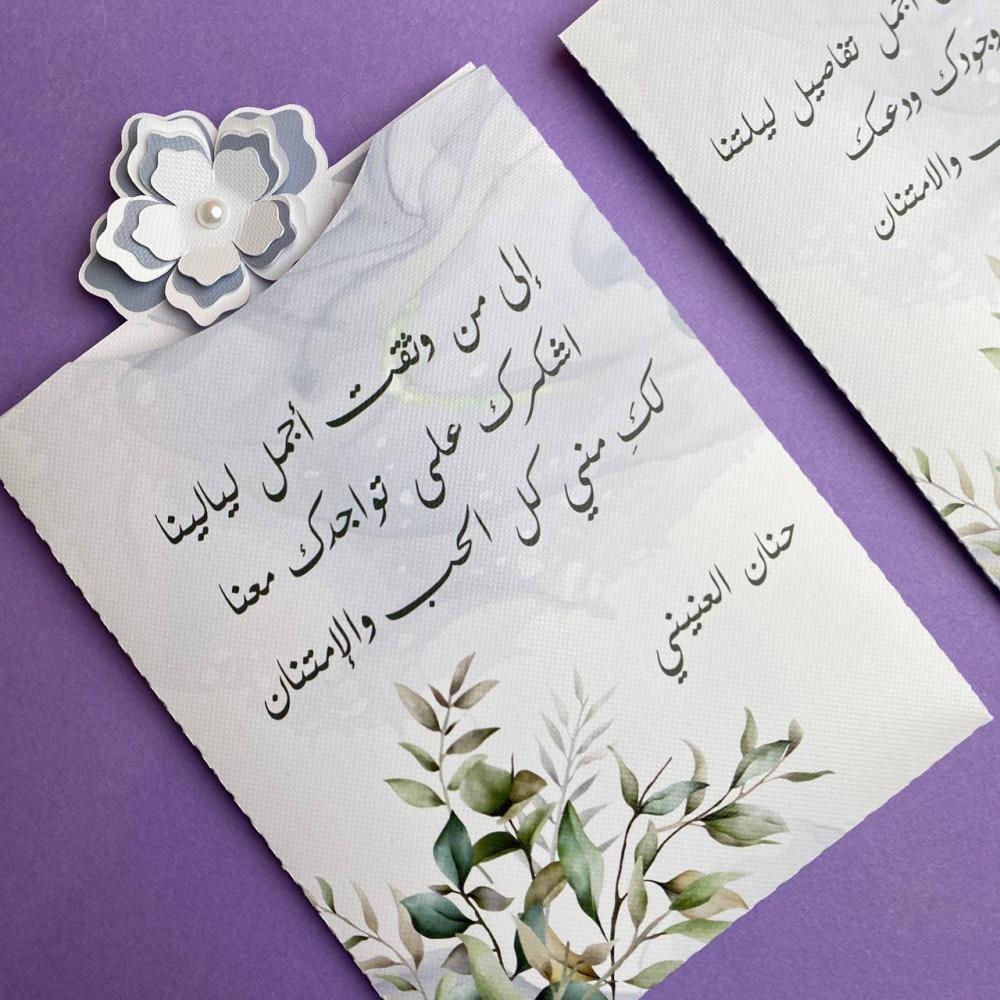 إلى من وثقت أجمل ليالينا
اشكرك على تواجدك معنا
لكِ مني كل الحب والإمتنان
حنان العنيني
أجمل تفاصيل ليلتنا
وجودك ودعمك
والامتنان